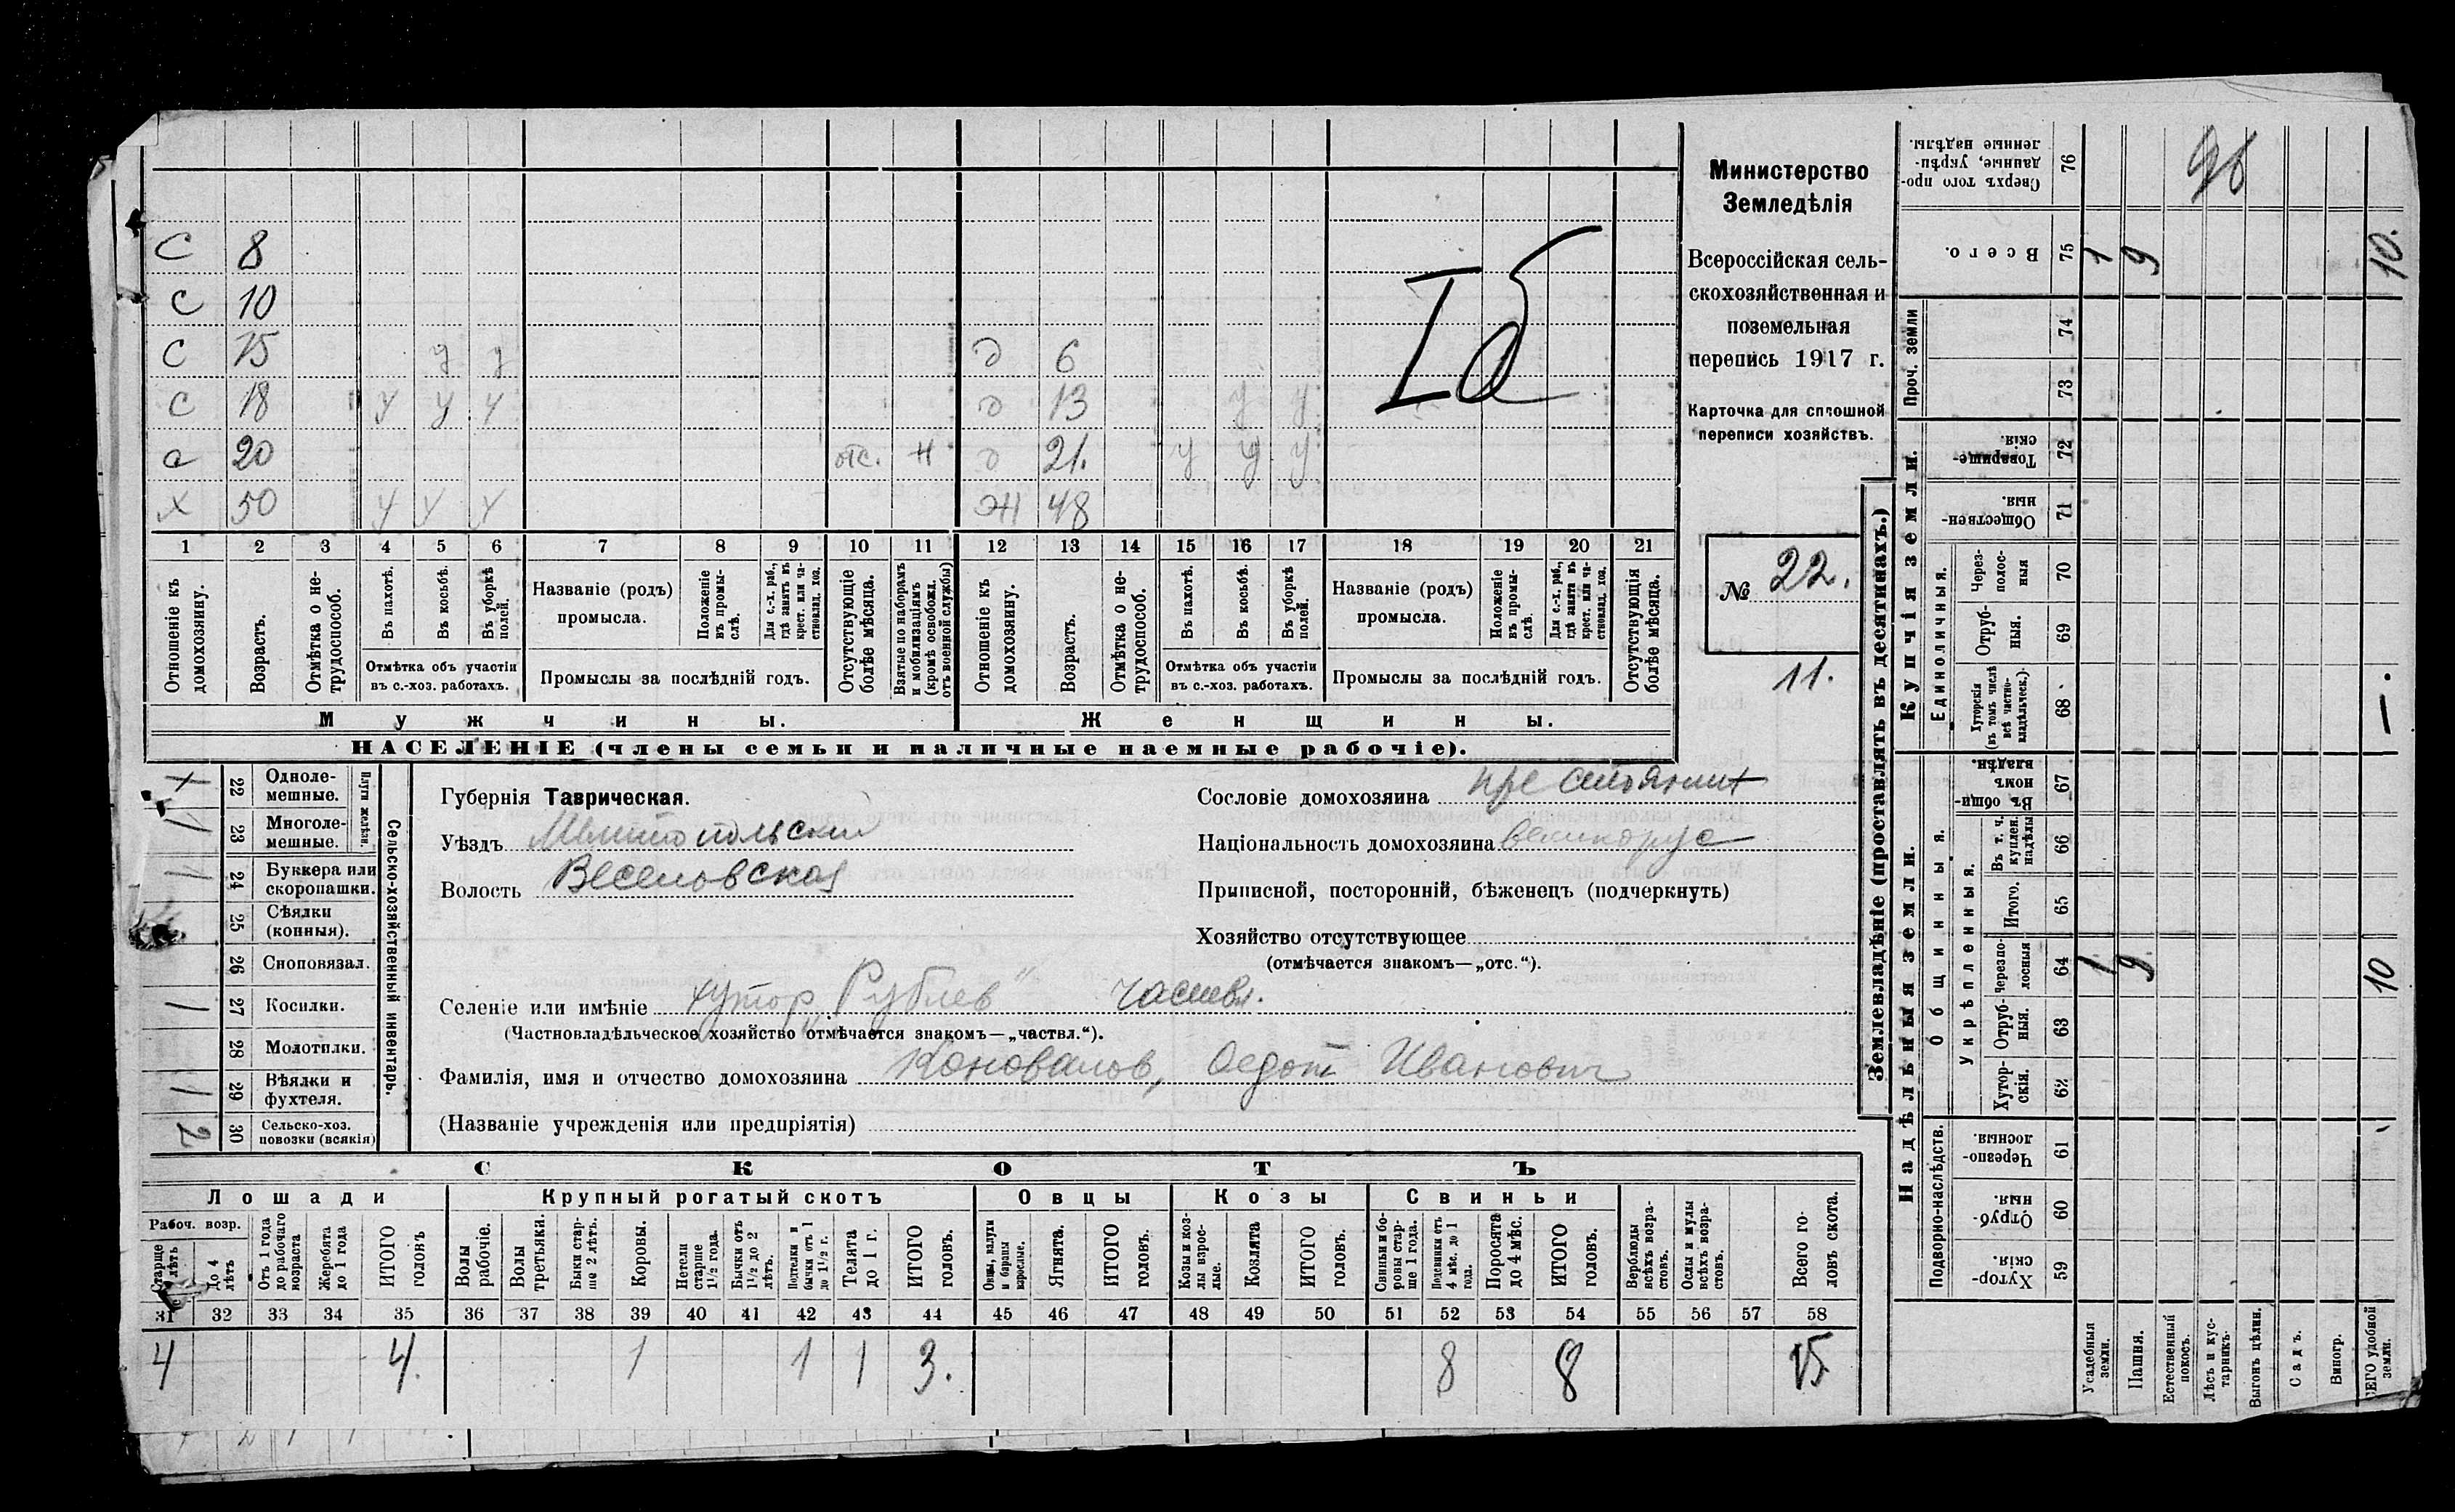 С 8
С 10
С 15 у у д 6
С 18 у у у д 13 у у
с 20 отс. н д 21. у у у
х 50 у у у ж 48
Iб
1 2 3 4 5 6 7 8 9 10 11 12 13 14 15 16 17 18 19 20 21
Отношеніе къ домохозяину.
Возрастъ.
Отмѣтка о не-трудоспособ.
Въ пахотѣ.
Въ косьбѣ.
Въ уборкѣ полей.
Отмѣтка объ участіи
въ с.-хоз. работахъ.
Названіе (родъ)
промысла.
Положеніе въ промы-слѣ.
Для с.-х. раб., гдѣ занятъ въ крест. или ча-стновлад. хоз.
Промыслы за послѣдній годъ.
Отсутствующіе болѣе мѣсяца.
Взятые по наборамъ и мобилизаціямъ (кромѣ освобожд. отъ военной службы)
Отношеніе къ домохозяину.
Возрастъ.
Отмѣтка о не-трудоспособ.
Въ пахотѣ.
Въ косьбѣ.
Въ уборкѣ полей.
Отмѣтка объ участіи
въ с.-хоз. работахъ.
Названіе (родъ)
промысла.
Положеніе въ промы-слѣ.
Для с.-х. раб., гдѣ занята въ крест. или ча-стновлад. хоз.
Промыслы за послѣдній годъ.
Отсутствующія болѣе мѣсяца.
Мужчины.
Женщины.
НАСЕЛЕНІЕ (члены семьи и наличные наемные рабочіе).
Министерство
Земледѣлія
Всероссійская сель-
скохозяйственная и
поземельная
перепись 1917 г.
Карточка для сплошной
переписи хозяйствъ.
№ 22.
11.
Сельско-хозяйственный инвентарь.
Плуги желѣзн.
22 Одноле-мешные.
1 23 Многоле-мешные.
1 24 Буккера или скоропашки.
25 Сѣялки (конныя).
26 Сноповязал.
1 27 Косилки.
28 Молотилки.
1 29 Вѣялки и фухтеля.
2 30 Сельско-хоз. повозки (всякія)
Губернія Таврическая.
Уѣздъ Мелитопольский
Волость Веселовская
Селеніе или имѣніе хутор „Рублев" частвл.
(Частновладѣльческое хозяйство отмѣчается знакомъ—„частвл.“).
Фамилія, имя и отчество домохозяина Коновалов, Федот Иванович
(Названіе учрежденія или предпріятія)
Сословіе домохозяина крестьянин
Національность домохозяина великорус
Приписной, посторонній, бѣженецъ (подчеркнуть)
Хозяйство отсутствующее
(отмѣчается знакомъ—„отс.“).
СКОТЪ
Лошади Крупный рогатый скотъ Овцы Козы Свиньи
Рабоч. возр.
Старше 4 лѣтъ
До 4 лѣтъ
Отъ 1 года до рабочаго возраста
Жеребята до 1 года
ИТОГО головъ
Волы рабочіе.
Волы третьяки.
Быки стар-ше 2 лѣтъ.
Коровы.
Нетели старше 1½ года.
Бычки отъ 1½ до 2 лѣтъ.
Подтелки и бычки отъ 1 до 1½ г.
Телята до 1 г.
ИТОГО головъ.
Овцы, валухи и бараны взрослые.
Ягнята.
ИТОГО головъ.
Козы и коз-лы взрос-лые.
Козлята
ИТОГО головъ.
Свиньи и бо-ровы стар-ше 1 года.
Подсвинки отъ 4 мѣс. до 1 года.
Поросята до 4 мѣс.
ИТОГО головъ.
Верблюды всѣхъ возра-стовъ.
Ослы и мулы всѣхъ возра-стовъ.
Всего го-ловъ скота.
31 32 33 34 35 36 37 38 39 40 41 42 43 44 45 46 47 48 49 50 51 52 53 54 55 56 57 58
4 4. 1 1 1 3. 8 8 15
Землевладѣніе (проставлять въ десятинахъ.)
Купчія земли.
Надѣльныя земли.
76 Сверхъ того про-данные, укрѣп-ленные надѣлы.
75 Всего. 1 9 10.
Проч. земли
74
73
72 Товарище-скія.
71 Обществен-ныя.
Единоличныя.
70 Через-полос-ныя
69 Отруб-ныя.
68 Хуторскія (въ томъ числѣ всѣ частно-владѣльческ.). —.
Общинныя.
67 Въ общин-номъ владѣн.
Укрѣпленныя.
66 Въ т. ч. куплен. надѣлы
65 Итого.
64 Черезпо-лосныя 1 9 10
63 Отруб-ныя.
62 Хутор-скія.
Подворно-наслѣдств.
61 Черезпо-лосныя.
60 Отруб-ныя.
59 Хутор-скія.
Усадебныя земли.
Пашня.
Естественный покосъ.
Лѣсъ и кус-тарникъ.
Выгонъ цѣлин.
Садъ.
Виногр.
ВСЕГО удобной земли.